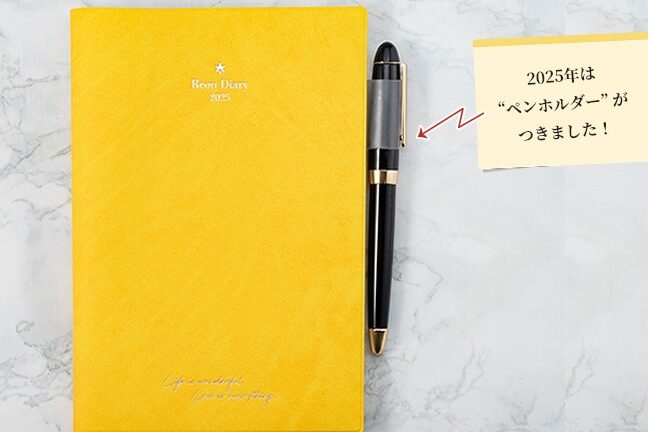 Reon Diary
2025
Life is wonderful.
Love is everything.
2025年は
“ペンホルダー”が
つきました！